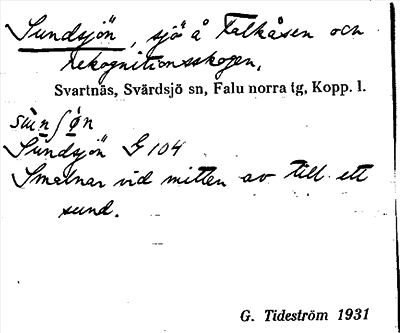 Sundsjön, sjö å Falkåsen och
rekognitionsskogen.
Svartnäs, Svärdsjö sn, Falu norra tg, Kopp. l.
Sundsjön G 104
Smalnar vid mitten av till ett
sund.
G. Tideström 1931